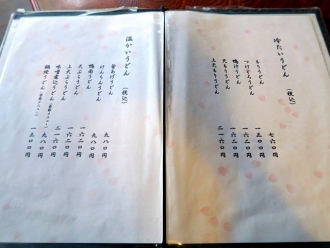 冷たいうどん（税込）
もりうどん 七六〇円
つけとろうどん 一三〇〇円
鴨汁うどん 一六二〇円
天もりうどん 一六二〇円
上天もりうどん 二一六〇円
温かいうどん（税込）
釜あげうどん 九八〇円
けんちんうどん 九八〇円
鴨南うどん 一六二〇円
天ぷらうどん 一六二〇円
上天ぷらうどん 三一六〇円
味噌煮込うどん 九八〇円
鍋焼うどん 一三〇〇円